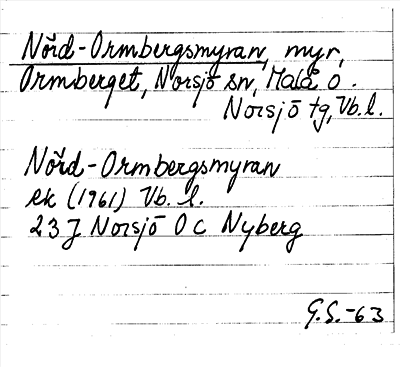 Nörd-Ormbergsmyran, myr,
Ormberget, Norsjö sn, Malå o.
Norsjö tg, Vb. l.
Nörd-Ormbergsmyran
ek (1961) Vb. l.
23 J Norsjö O C Nyberg
G.S.-63